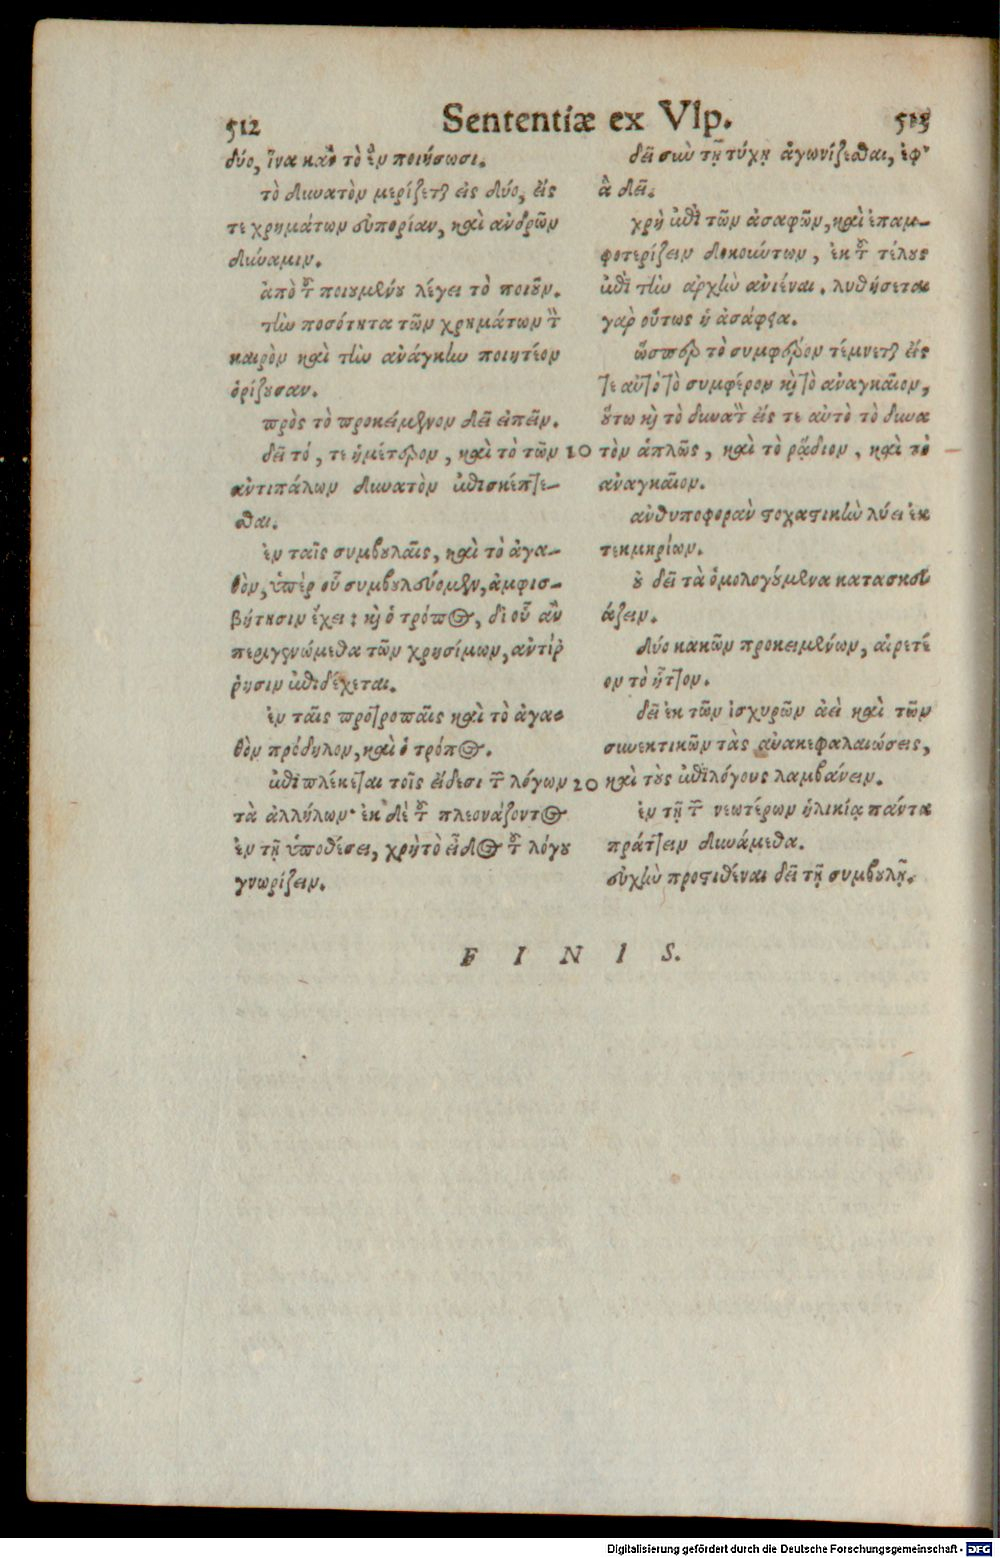 512
Sententiæ ex Vlp.
513
δύο, ἵνα καὶ τὸ ἓν ποιήσωσι.
τὸ δυνατὸν μερίζεται εἰς δύο, εἴς
τε χρημάτων εὐπορίαν, καὶ ἀνδρῶν
δύναμιν.
ἀπὸ τοῦ ποιουμένου λέγει τὸ ποιοῦν.
τὴν ποσότητα τῶν χρημάτων τὸν
καιρὸν καὶ τὴν ἀνάγκην ποιητέον
ὁρίζουσαν.
πρὸς τὸ προκείμενον δεῖ εἰπεῖν.
δεῖ τό, τε ἡμέτερον, καὶ τὸ τῶν
ἀντιπάλων δυνατὸν ἐπισκέπτε-
σθαι.
ἐν ταῖς συμβουλαῖς, καὶ τὸ ἀγα-
θὸν, ὑπὲρ οὗ συμβουλεύομεν, ἀμφισ-
βήτησιν ἔχει: καὶ ὁ τρόπος, δι οὗ ἂν
περιγενώμεθα τῶν χρησίμων, ἀντίρ
ῥησιν ἐπιδέχεται.
ἐν ταῖς προτροπαῖς καὶ τὸ ἀγα-
θὸν πρόδηλον, καὶ ὁ τρόπος.
ἐπιπλέκεται τοῖς εἴδεσι τῶν λόγων
τὰ ἀλλήλων· ἐκ δὲ τοῦ πλεονάζοντος
ἐν τῇ ὑποθέσει, χρὴ τὸ εἶδος τοῦ λόγου
γνωρίζειν.
10
20
δεῖ σὺν τῇ τύχῃ ἀγωνίζεσθαι, ἐφ'
ἃ δεῖ.
χρὴ ἐπὶ τῶν ἀσαφῶν, καὶ ἐπαμ-
φοτερίζειν δοκούντων, ἐκ τοῦ τέλους
ἐπὶ τὴν ἀρχὴν ἀνιέναι. λυθήσεται
γὰρ οὕτως ἡ ἀσάφεια.
ὥσπερ τὸ συμφέρον τέμνεται εἴς
τε αὐτὸ τὸ συμφέρον καὶ τὸ ἀναγκαῖον,
οὕτω καὶ τὸ δυνατὸν εἴς τε αὐτὸ τὸ δυνα
τὸν ἁπλῶς, καὶ τὸ ῥᾴδιον, καὶ τὸ
ἀναγκαῖον.
ἀνθυποφορὰν στοχαστικὴν λύει ἐκ
τεκμηρίων.
οὐ δεῖ τὰ ὁμολογούμενα κατασκευ
άζειν.
δύο κακῶν προκειμένων, αἱρετέ
ον τὸ ἧττον.
δεῖ ἐκ τῶν ἰσχυρῶν ἀεὶ καὶ τῶν
συνεκτικῶν τὰς ἀνακεφαλαιώσεις,
καὶ τοὺς ἐπιλόγους λαμβάνειν.
ἐν τῇ τῶν νεωτέρων ἡλικίᾳ πάντα
πράττειν δυνάμεθα.
εὐχὴν προστιθέναι δεῖ τῇ συμβουλῇ.
FINIS.
Digitalisierung gefördert durch die Deutsche Forschungsgemeinschaft - DFG